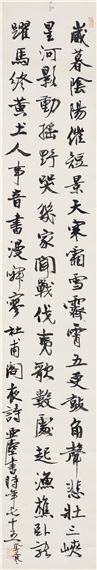 歲暮陰陽催短景天寒霜雪霽宵五更鼓角聲悲壯三峽
星河影動搖野哭幾家聞戰伐夷歌數處起漁樵臥龍
躍馬終黃土人事音書漫寂寥杜甫閣夜詩書時年七十五